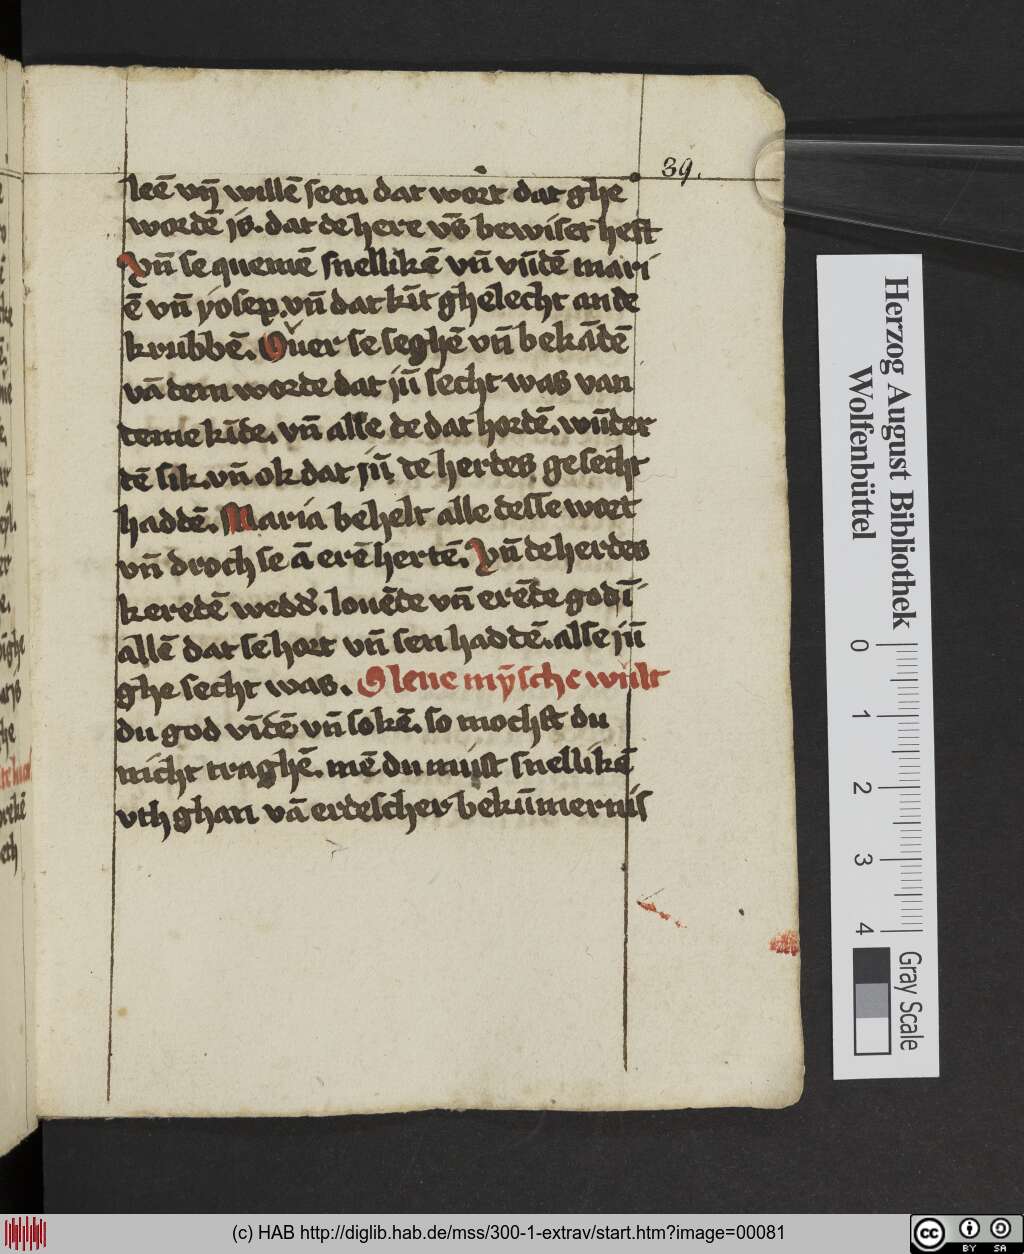 39.
leē vn̄ willē seen dat wort dat ghe
wordē js. dat de here vs̄ bewiset heft
Vn̄ se quemē snellikē vn̄ vūdē mari
ē vn̄ yosep. vn̄ dat kīt ghelecht an de
krubbē. Ouer se seghē vn̄ bekādē
vā dem worde dat jū secht was van
deme kīde. vn̄ alle de dat hordē. wūder
dē sik. vn̄ ok dat jū de herdes gesecht
haddē. Maria behelt alle desse wort
vn̄ droch se ā erē hertē. Vn̄ de herdes
keredē wedd̛. louēde vn̄ erēde god ī
allē dat se hort vn̄ sen haddē. alse jū
ghe secht was. O leue mȳsche wult
du god vīdē vn̄ sokē. so mochst du
nicht traghē. mē du must snellikē
vth ghan vā erdescher bekūmernis
Herzog August Bibliothek
Wolfenbüttel
0 1 2 3 4
Gray Scale
(c) HAB http://diglib.hab.de/mss/300-1-extrav/start.htm?image=00081
cc BY SA